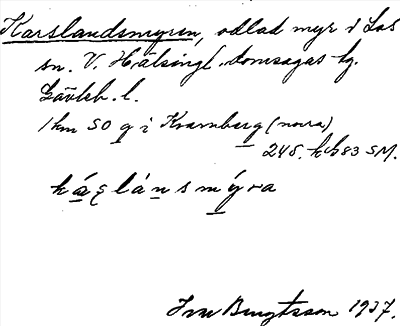 Karslandsmyren, odlad myr i Los
sn. V. Hälsingl. domsagas tg.
Gävleb. l.
1 km SO g i Kvarnberg (norra)
248. kbl 83 SM.
káʂlánsmýra
Bengtsson 1937.